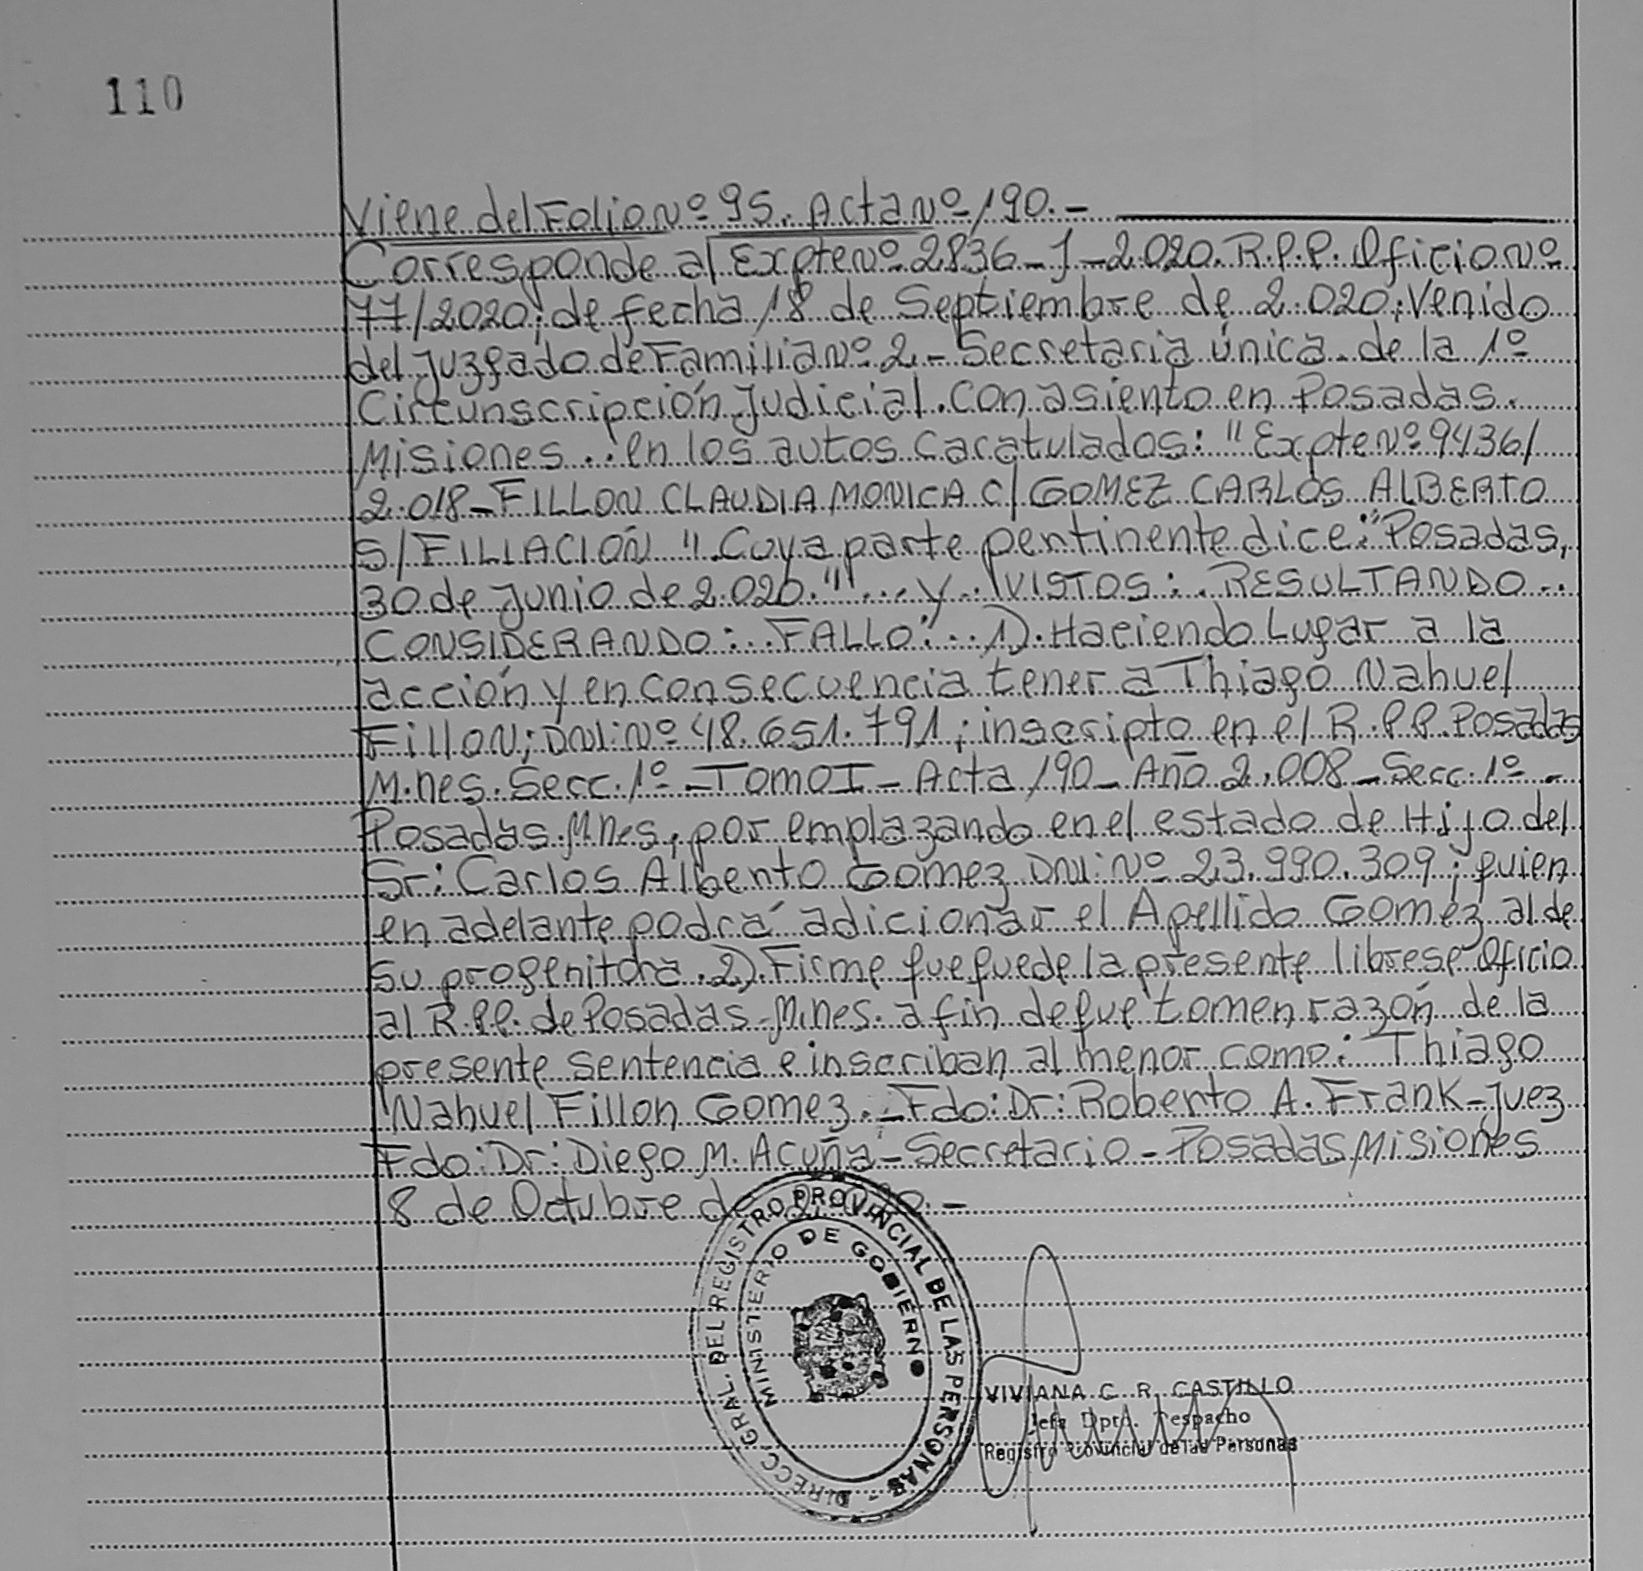 110
Viene del Folio Nº 95. Acta Nº 190.-
Corresponde al Expte Nº 2836-J-2.020. R.P.P. Oficio Nº
77/2020; de fecha 18 de Septiembre de 2.020; Venido
del Juzgado de Familia Nº 2.- Secretaria única. de la 1º
Circunscripción Judicial. con asiento en Posadas.
Misiones... en los autos Cacatulados: "Expte Nº 9436/
2.018-FILLON CLAUDIA MONICA C/ GOMEZ CARLOS ALBERTO
S/FILIACIÓN". Cuya parte pentinente dice: "Posadas,
30 de Junio de 2.020."... y VISTOS: RESULTANDO..
CONSIDERANDO:.. FALLO:.. 1) Haciendo Lugar a la
acción y en consecuencia tener a Thiago Nahuel
Fillon; DNI: Nº 48.651.791; inscripto en el R.P.P. Posadas
M.nes. Secc. 1º - TOMO I - Acta 190 - Año 2.008 - Secc. 1º -
Posadas. Mnes, por emplazando en el estado de Hijo del
Sr: Carlos Albento Gomez DNI: Nº 23.990.309; quien
en adelante podrá adicionar el Apellido Gomez al de
su progenitora. 2) Firme que quede la presente librese oficio
al R.P.P. de Posadas-M.nes. a fin de que tomen razón de la
presente sentencia e inscriban al menor como: Thiago
Nahuel Fillon Gomez.- Fdo: Dr: Roberto A. Frank-Juez
Fdo: Dr: Diego M. Acuña-Secretario-Posadas Misiones
8 de Octubre de 2.020.-
DIRECC. GRAL. DEL REGISTRO PROVINCIAL DE LAS PERSONAS -
MINISTERIO DE GOBIERNO
VIVIANA C. R. CASTILLO
Jefa Dpto. Despacho
Registro Provincial de las Personas